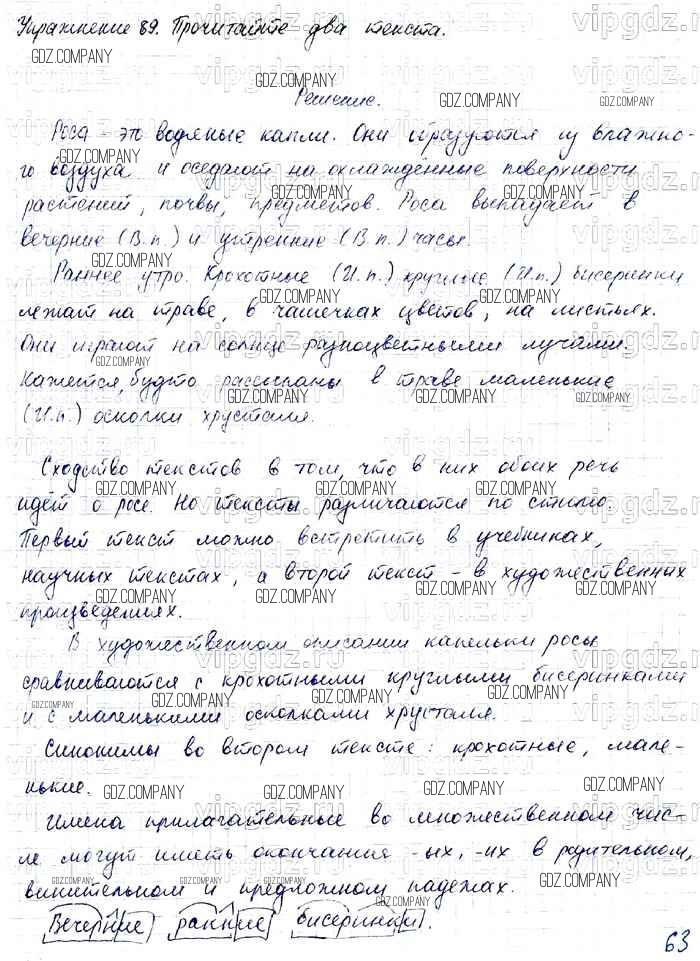 Упражнение 89. Прочитайте два текста.
Решение.
Роса - это водяные капли. Они образуются из влажно-
го воздуха и оседают на охлаждённые поверхности
растений, почвы, предметов. Роса выпадает в
вечерние (В.п.) и утренние (В.п.) часы.
Раннее утро. Крохотные (И.п.) круглые (И.п.) бисеринки
лежат на траве, в чашечках цветов, на листьях.
Они играют на солнце разноцветными лучами.
Кажется, будто рассыпаны в траве маленькие
(И.п.) осколки хрусталя.
Сходство текстов в том, что в них обоих речь
идёт о росе. Но тексты различаются по стилю.
Первый текст можно встретить в учебниках,
научных текстах, а второй текст - в художественных
произведениях.
В художественном описании капельки росы
сравниваются с крохотными круглыми бисеринками
и с маленькими осколками хрусталя.
Синонимы во втором тексте: крохотные, мале-
нькие.
Имена прилагательные во множественном чис-
ле могут иметь окончания -ых, -их в родительном,
винительном и предложном падежах.
Вечерние, ранние, бисеринки.
63
GDZ.COMPANY
vipgdz.ru